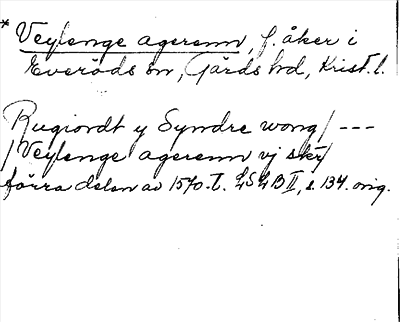 * Veylenge agerenn, f. åker i
Everöds sn, Gärds hd, Krist. l.
Rugiordt y Syndre wong / ---
/ Veylenge agerenn vj skr/
förra delen av 1570-t. LSLB II, s. 134. orig.